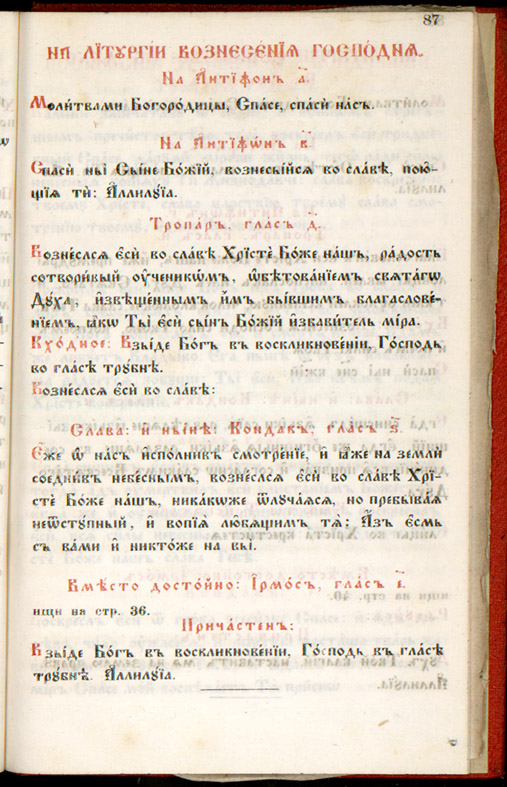 87
НА ЛІТꙋРГІИ ВОЗНЕСЕ́НІѦ ГОСПО́ДНѦ.
На Антїфѡнъ а҃.
Моли́твами Богоро́дицы, Спа́се, спаси́ на́съ.
На Антїфѡ́нъ в҃.
Спаси́ ны̀ Сы́не Бо́жїй, вознесы́йсѧ во сла́вѣ, пою́-
щїѧ тѝ: А҆ллилꙋ́їа.
Тропа́р, гла́съ д҃.
Вознеслсѧ є҆сѝ во сла́вѣ Хрїстѐ Бо́же на́шъ, ра́дость
сотвори́вый ᲂу҆ченикѡ́м, ѡ҆бѣтова́нїем свѧта́гѡ
Дꙋ́ха, и҆звѣще́нным и҆̀м бы́вшим благослове́-
нїем, ꙗ҆́кѡ Ты̀ є҆сѝ сы́нъ Бо́жїй и҆зба́витель мі́ра.
Вхо́дное: Взы́де Бо́гъ в воскликнове́нїи, Госпо́дь
во гла́сѣ трꙋ́бнѣ.
Вознеслсѧ є҆сѝ во сла́вѣ:
Сла́ва: и҆ ны́нѣ: Конда́к, гла́съ ѕ҃.
Є҆́же ѡ҆ на́съ и҆спо́лнивъ смотре́нїе, и҆ ꙗ҆̀же на землѝ
соедни́въ небе́сным, вознеслсѧ є҆сѝ во сла́вѣ Хрї-
стѐ Бо́же на́шъ, ника́кѡже ѿлꙋча́ѧсѧ, но пребыва́ѧ
неѿстꙋпный, и҆ вопїѧ̀ лю́бѧщим тѧ̀; А҆́зъ є҆́смь
съ ва́ми и҆ никто́же на вы̀.
Вмѣ́сто досто́йно: Ірмо́съ, гла́съ є҃.
ищи на стр. 36.
Прича́стен:
Взы́де Бо́гъ в воскликнове́нїи, Го́сподь в гла́сѣ
трꙋ́бнѣ. А҆ллилꙋ́їа.